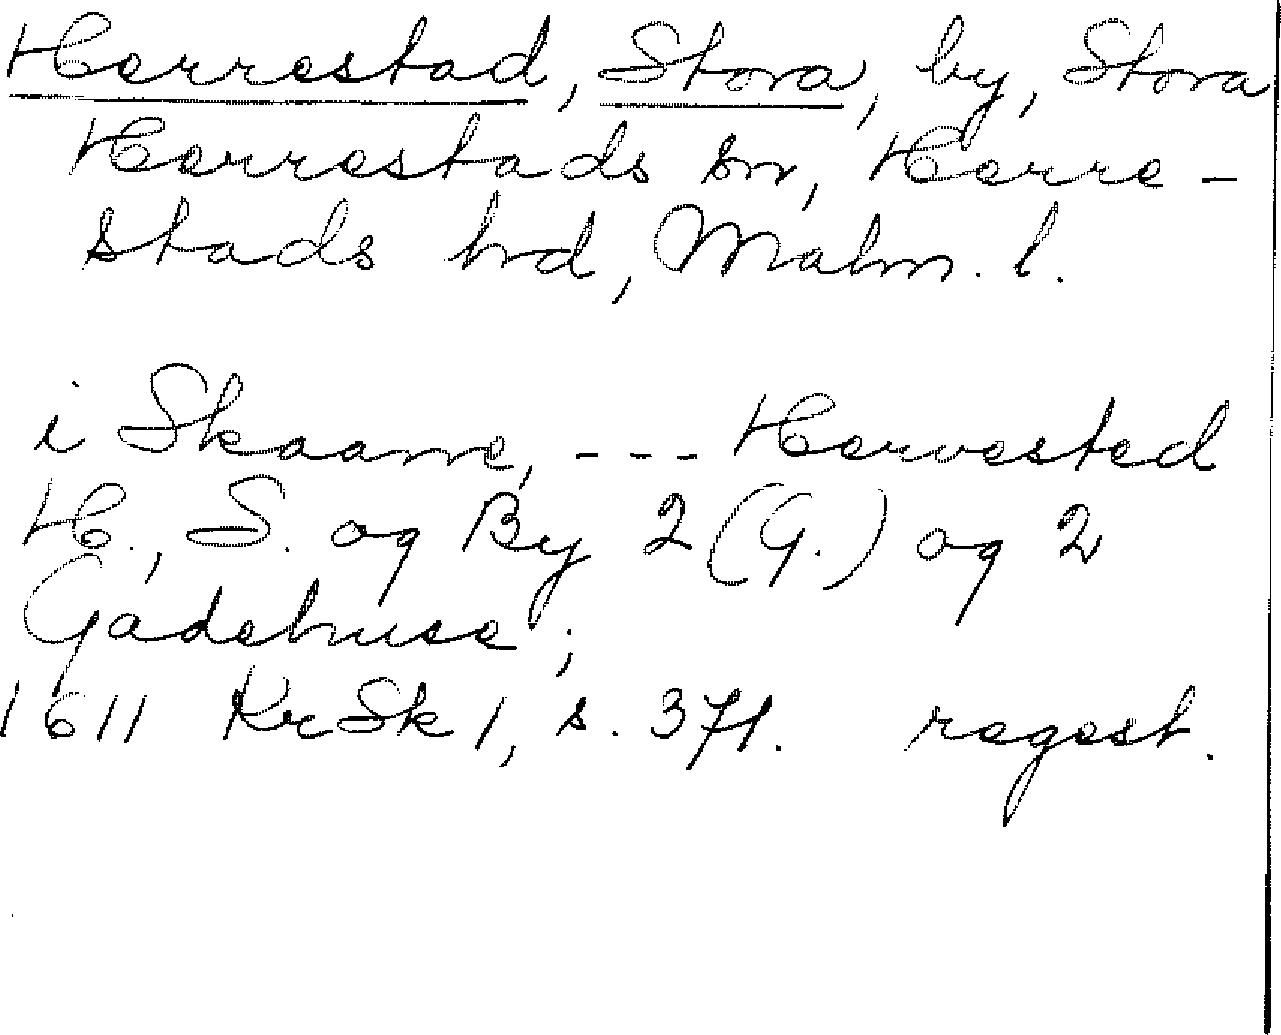 Herrestad, Stora, by, Stora
Herrestads sn, Herre-
stads hd, Malm. l.
i Skaane, --- Hervested
H., S. og By 2 (G.) og 2
Gadehuse;
1611 KrSk 1, s. 371. regest.